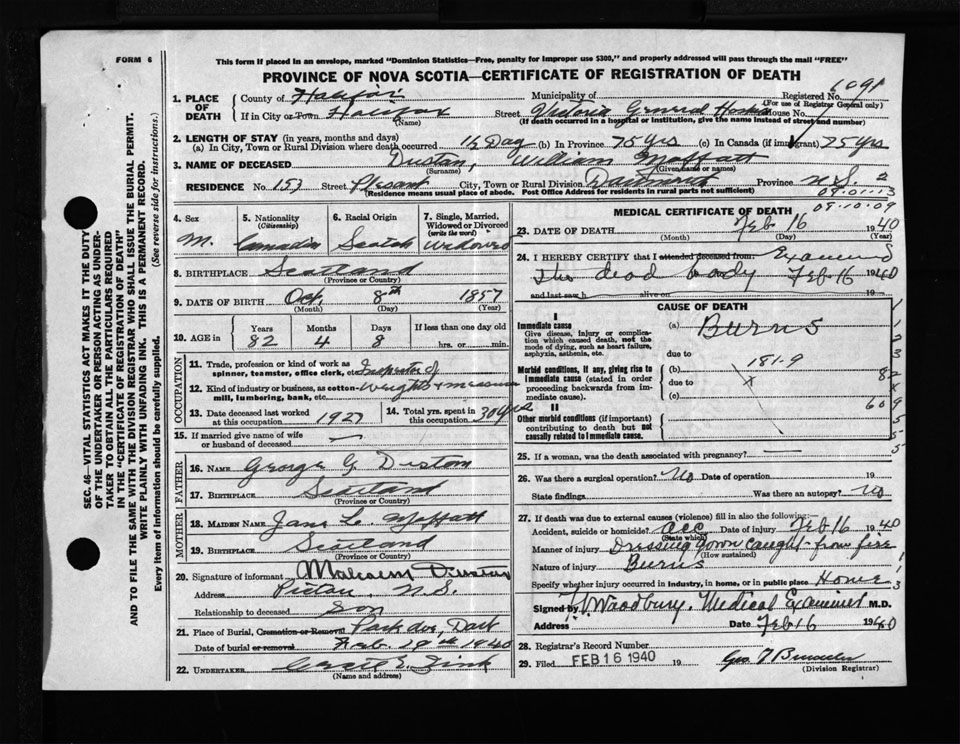 FORM 6
This form if placed in an envelope, marked "Dominion Statistics—Free, penalty for improper use $300," and properly addressed will pass through the mail "FREE"
PROVINCE OF NOVA SCOTIA—CERTIFICATE OF REGISTRATION OF DEATH
SEC. 46—VITAL STATISTICS ACT MAKES IT THE DUTY
OF THE UNDERTAKER OR PERSON ACTING AS UNDER-
TAKER TO OBTAIN ALL THE PARTICULARS REQUIRED
IN THE "CERTIFICATE OF REGISTRATION OF DEATH"
AND TO FILE THE SAME WITH THE DIVISION REGISTRAR WHO SHALL ISSUE THE BURIAL PERMIT.
WRITE PLAINLY WITH UNFADING INK. THIS IS A PERMANENT RECORD.
Every item of Information should be carefully supplied. (See reverse side for instructions.)
1. PLACE OF DEATH
County of Halifax Municipality of Registered No.
(For use of Registrar General only)
If in City or Town Halifax Street Victoria General House No.
(Name) (If death occurred in a hospital or institution, give the name instead of street and number)
2. LENGTH OF STAY (in years, months and days)
(a) In City, Town or Rural Division where death occurred 1½ Day (b) In Province 75 yrs (c) In Canada (if immigrant) 75 yrs
3. NAME OF DECEASED Dustan, William Moffatt
(Surname) (Given name or names)
RESIDENCE No. 153 Street Pleasant City, Town or Rural Division Dartmouth Province N.S.
(Residence means usual place of abode. Post Office Address for residents in rural parts not sufficient)
09-01-13
09-10-09
4. Sex M.
5. Nationality (Citizenship) Canadian
6. Racial Origin Scotch
7. Single, Married, Widowed or Divorced (write the word) Widowed
8. BIRTHPLACE Scotland
(Province or Country)
9. DATE OF BIRTH Oct. 8th 1857
(Month) (Day) (Year)
10. AGE in Years 82 Months 4 Days 8 If less than one day old hrs. or min.
OCCUPATION
11. Trade, profession or kind of work as spinner, teamster, office clerk, etc. Inspector of
12. Kind of industry or business, as cotton-mill, lumbering, bank, etc. Weights & measures
13. Date deceased last worked at this occupation 1927
14. Total yrs. spent in this occupation 30 yrs
15. If married give name of wife or husband of deceased —
FATHER
16. NAME George G. Dustan
17. BIRTHPLACE Scotland
(Province or Country)
MOTHER
18. MAIDEN NAME Jane L. Moffatt
19. BIRTHPLACE Scotland
(Province or Country)
20. Signature of informant Malcolm Dustan
Address Pictou, N.S.
Relationship to deceased Son
21. Place of Burial, Cremation or Removal Park Ave, Dart
Date of burial or removal Feb. 19th 1940
22. UNDERTAKER
(Name and address)
MEDICAL CERTIFICATE OF DEATH
23. DATE OF DEATH Feb 16 1940
(Month) (Day) (Year)
24. I HEREBY CERTIFY that I attended deceased from: Examined
the dead body Feb 16 1940
and last saw h alive on 19
CAUSE OF DEATH
I
Immediate cause
Give disease, injury or complication which caused death, not the mode of dying, such as heart failure, asphyxia, asthenia, etc.
(a) Burns
due to
Morbid conditions, if any, giving rise to immediate cause (stated in order proceeding backwards from immediate cause).
(b) 181-9
due to
(c)
II
Other morbid conditions (if important) contributing to death but not causally related to immediate cause.
25. If a woman, was the death associated with pregnancy? —
26. Was there a surgical operation? No Date of operation 19
State findings Was there an autopsy? No
27. If death was due to external causes (violence) fill in also the following:—
Accident, suicide or homicide? acc Date of injury Feb 16 1940
(State which)
Manner of injury Dressing gown caught from fire
(How sustained)
Nature of injury Burns
Specify whether injury occurred in industry, in home, or in public place Home
Signed by Woodbury. Medical Examiner M.D.
Address Date Feb 16 1940
28. Registrar's Record Number
29. Filed FEB 16 1940 19
(Division Registrar)